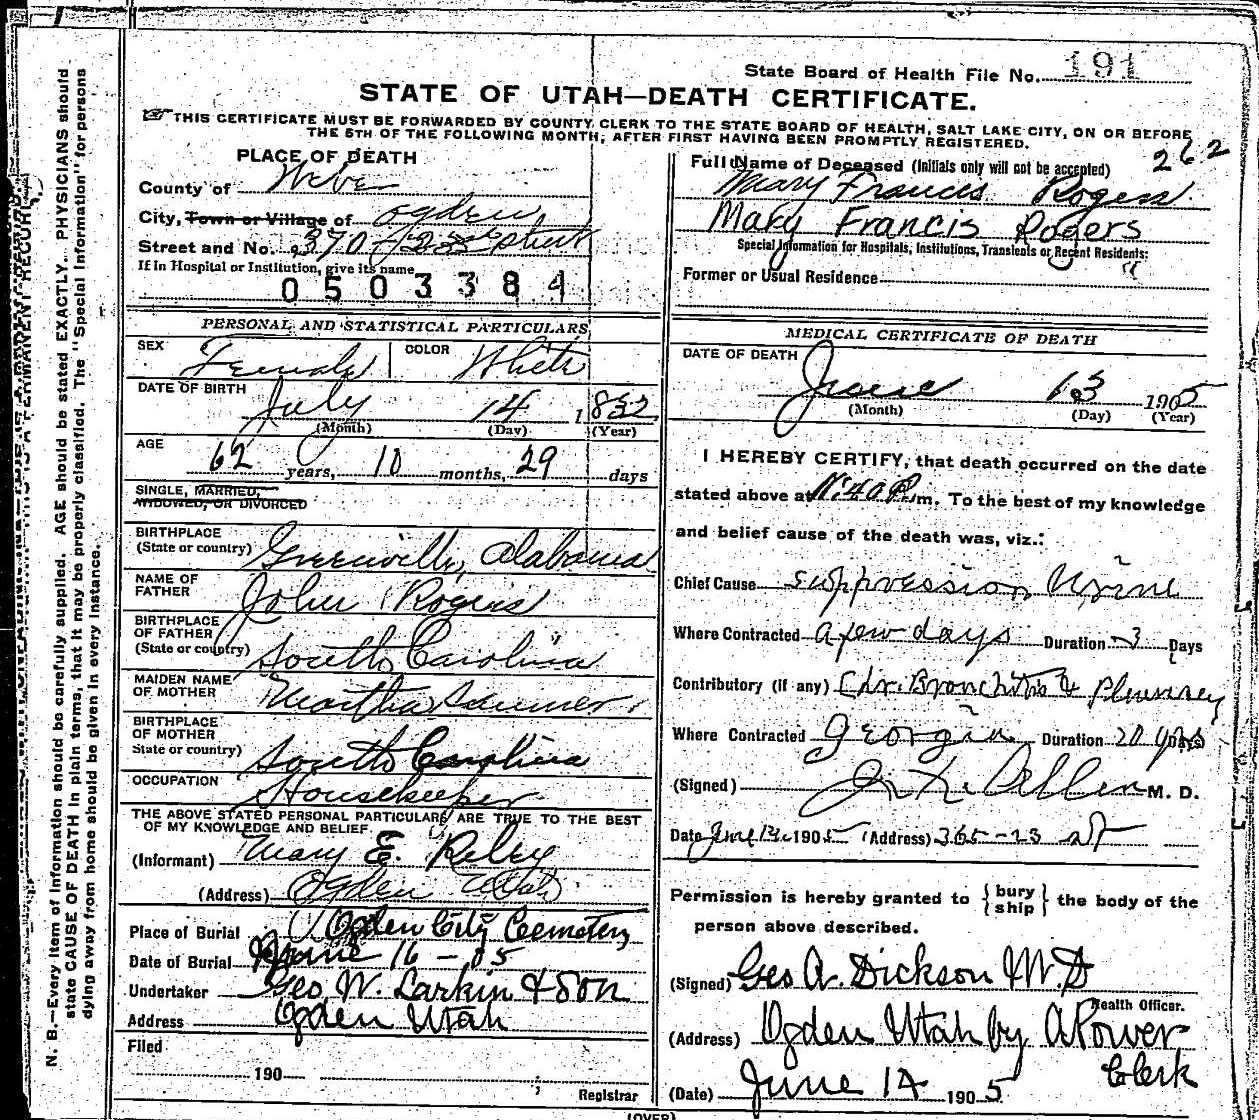 State Board of Health File No. 191
STATE OF UTAH—DEATH CERTIFICATE.
THIS CERTIFICATE MUST BE FORWARDED BY COUNTY CLERK TO THE STATE BOARD OF HEALTH, SALT LAKE CITY, ON OR BEFORE
THE 5TH OF THE FOLLOWING MONTH, AFTER FIRST HAVING BEEN PROMPTLY REGISTERED.
262
PLACE OF DEATH
County of Weber
City, Town or Village of Ogden
Street and No. 370 - 28 Street
If in Hospital or Institution, give its name
0503384
Full Name of Deceased (Initials only will not be accepted)
Mary Francis Rogers
Mary Francis Rogers
Special Information for Hospitals, Institutions, Transients or Recent Residents:
Former or Usual Residence
PERSONAL AND STATISTICAL PARTICULARS
SEX Female COLOR White
DATE OF BIRTH July 14 1832
(Month) (Day) (Year)
AGE 62 years, 10 months, 29 days
SINGLE, MARRIED,
WIDOWED, OR DIVORCED
BIRTHPLACE
(State or country) Greenville, Alabama
NAME OF
FATHER John Rogers
BIRTHPLACE
OF FATHER
(State or country) South Carolina
MAIDEN NAME
OF MOTHER Martha
BIRTHPLACE
OF MOTHER
State or country) South Carolina
OCCUPATION Housekeeper
THE ABOVE STATED PERSONAL PARTICULARS ARE TRUE TO THE BEST
OF MY KNOWLEDGE AND BELIEF.
(Informant) Mary E. Riley
(Address) Ogden Utah
Place of Burial Ogden City Cemetery
Date of Burial June 16 - 05
Undertaker Geo. W. Larkin & Son
Address Ogden Utah
Filed
190
Registrar
MEDICAL CERTIFICATE OF DEATH
DATE OF DEATH June 13 1905
(Month) (Day) (Year)
I HEREBY CERTIFY, that death occurred on the date
stated above at 11:40 P.m. To the best of my knowledge
and belief cause of the death was, viz.:
Chief Cause suppression Urine
Where Contracted a few days Duration 3 Days
Contributory (if any) Chr. Bronchitis & Pleurisy
Where Contracted Georgia Duration 20 yrs Days
(Signed) M. D.
Date June 14 1905 (Address) 365-23 St
Permission is hereby granted to { bury ship } the body of the
person above described.
(Signed) Geo A. Dickson M.D
Health Officer.
(Address) Ogden Utah by A Power
Clerk
(Date) June 14 1905
(OVER)
N. B.—Every item of information should be carefully supplied. AGE should be stated EXACTLY. PHYSICIANS should
state CAUSE OF DEATH in plain terms, that it may be properly classified. The "Special Information" for persons
dying away from home should be given in every instance.